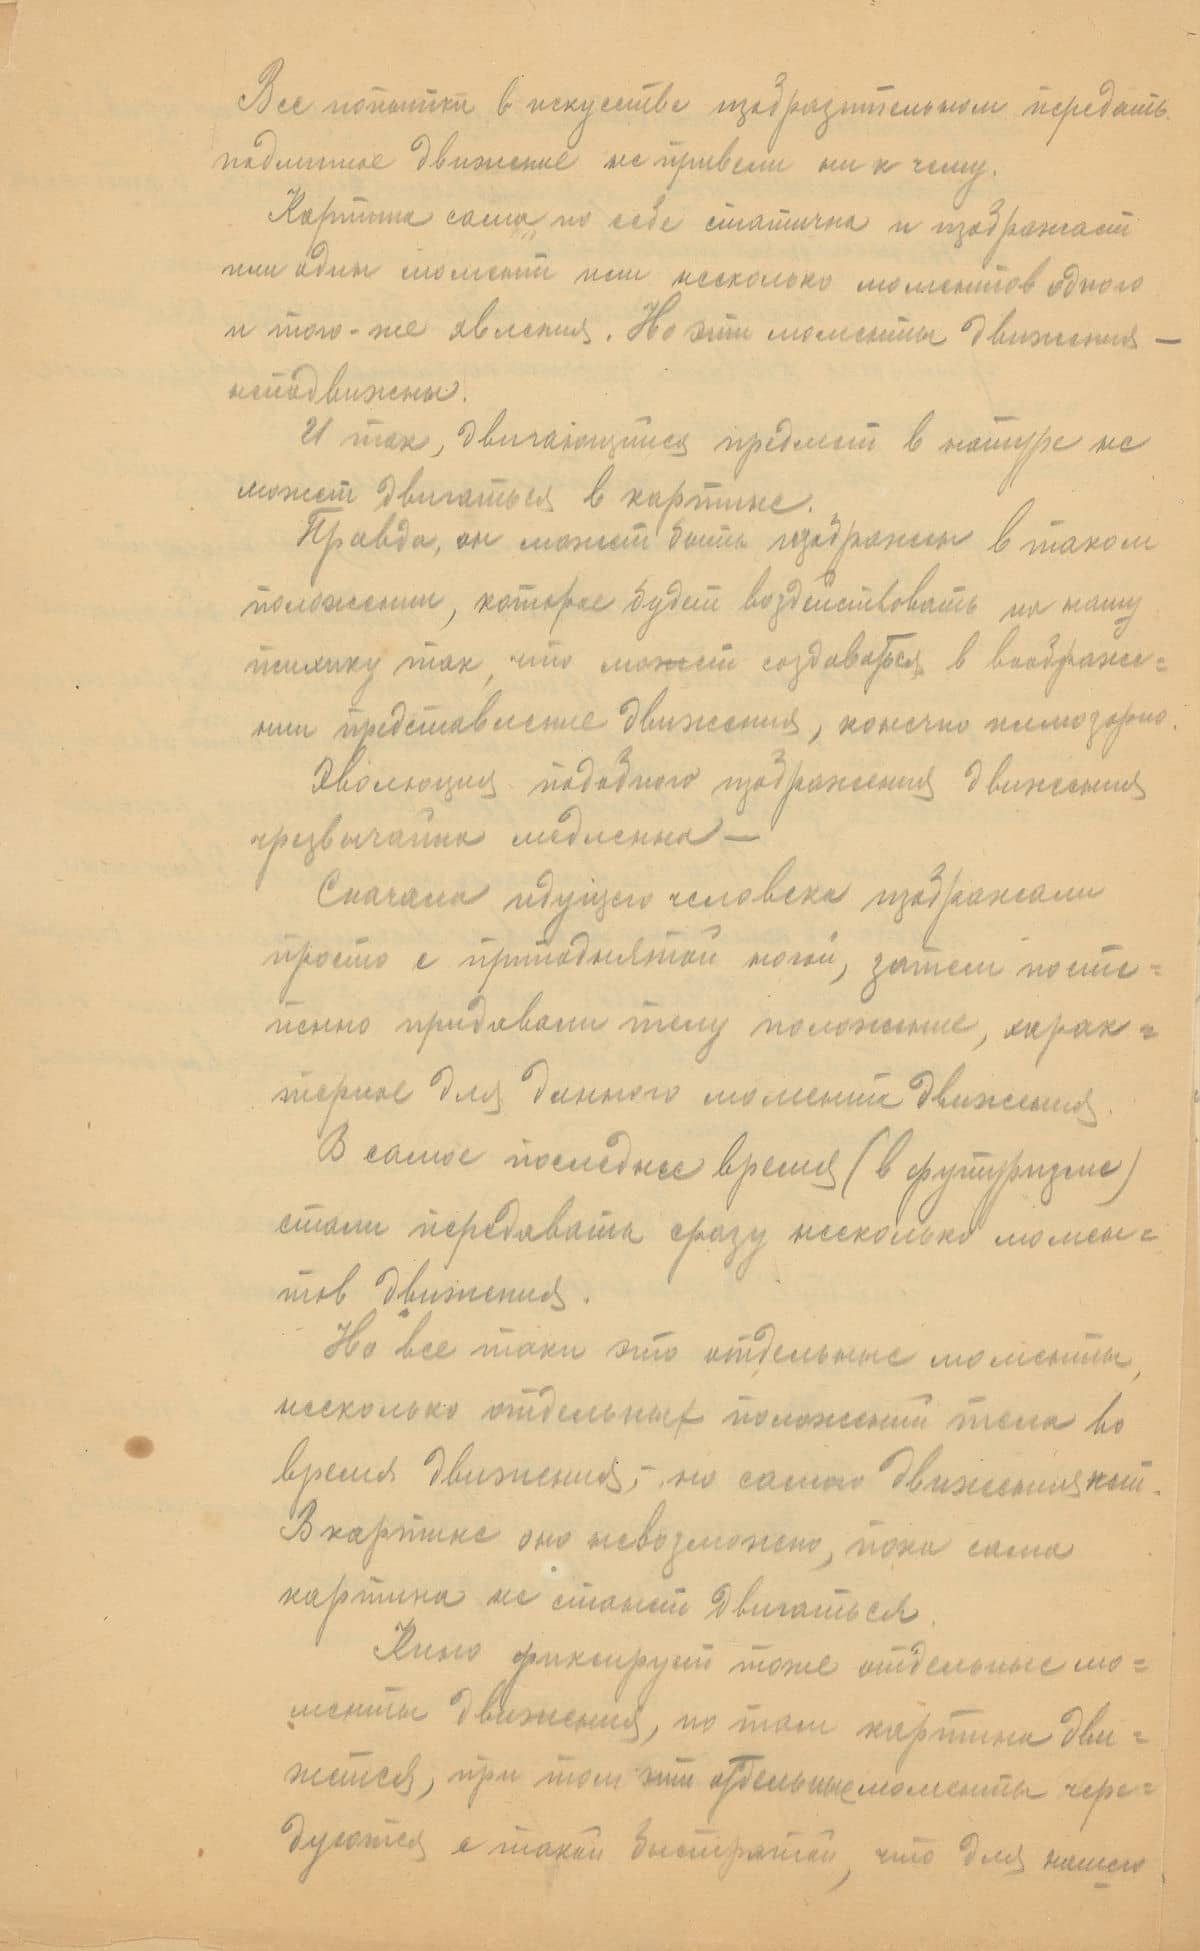 Все попытки в искусстве изобразительном передать
подлинное движение не привели ни к чему.
Картина сама по себе статична и изображает
или один момент или несколько моментов одного
и того-же явления. Но эти моменты движения —
неподвижны.
И так, двигающийся предмет в натуре не
может двигаться в картине.
Правда, он может быть изображен в таком
положении, которое будет воздействовать на нашу
психику так, что может создаваться в воображе=
нии представление движения, конечно иллюзорно.
Эволюция подобного изображения движения
чрезвычайно медленна —
Сначала идущего человека изображали
просто с приподнятой ногой, затем посте=
пенно придавали телу положение, харак=
терное для данного момента движения.
В самое последнее время (в футуризме)
стали передавать сразу несколько момен=
тов движения.
Но все таки это отдельные моменты,
несколько отдельных положений тела во
время движения, – но самого движения нет.
В картине оно невозможно, пока сама
картина не станет двигаться.
Кино фиксирует тоже отдельные мо=
менты движения, но там картина дви=
жется, при том эти отдельные моменты чере=
дуются с такой быстротой, что для нашего